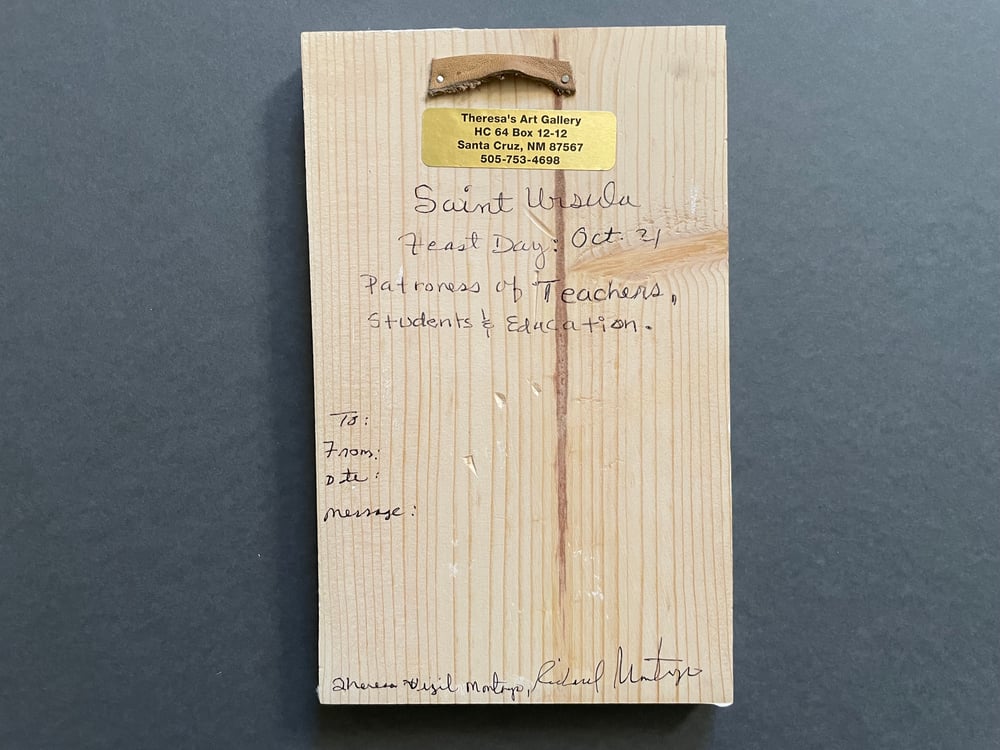 Theresa's Art Gallery
HC 64 Box 12-12
Santa Cruz, NM 87567
505-753-4698
Saint Ursula
Feast Day: Oct. 21
Patroness of Teachers,
Students & Education.
To:
From:
Date:
message:
Theresa Vigil Montoya, Richard Montoya